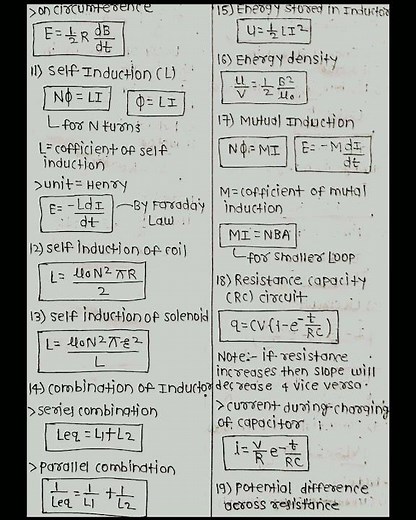 >on circumference
E=½R dB/dt
11) Self Induction (L)
Nϕ=LI
ϕ=LI
for N turns
L=cofficient of self
induction
>unit=Henry
E=-LdI/dt
By Faraday
Law
12) self induction of coil
L= μ0N²πR/2
13) self induction of solenoid
L= μ0N²πr²/L
14) combination of Inductor
>seriel combination
Leq=L1+L2
>parallel combination
1/Leq=1/L1+1/L2
15) Energy stored in Inductor
U=½LI²
16) Energy density
U/V=1/2 B²/μ0
17) Mutual Induction
Nϕ=MI
E=-MdI/dt
M=cofficient of mutal
induction
MI=NBA
for smaller loop
18) Resistance capacity
(RC) circuit
q=CV(1-e-t/RC)
Note:- if resistance
increases then slope will
decrease & vice versa.
>current during charging
of capacitor
i=V/R e-t/RC
19) Potential difference
across resistance